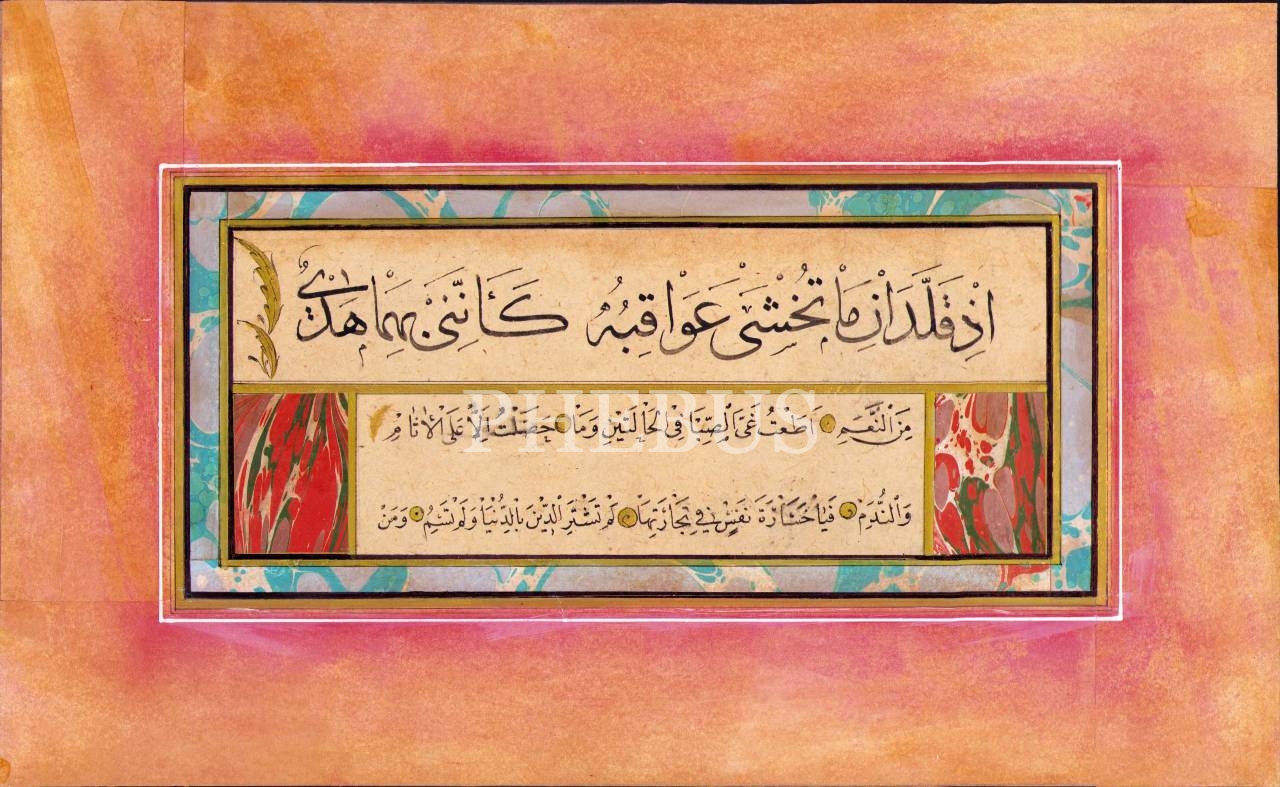 اِذْ قَلَّدَانِ مَا تُخْشَى عَوَاقِبُهُ كَأَنَّنِى بِهِمَا هَدْىٌ
مِنَ النَّعَمِ اَطَعْتُ غَىَّ الصِّبَا فِى الْحَالَتَيْنِ وَمَا حَصَلْتُ اِلَّا عَلَى الْاٰثَامْ
PHEBUS
وَالنَّدَمْ فَيَا خَسَارَةَ نَفْسٍ فِى تِجَارَتِهَا لَمْ تَشْتَرِ الدِّيْنَ بِالدُّنْيَا وَلَمْ تَسُمِ وَمَنْ